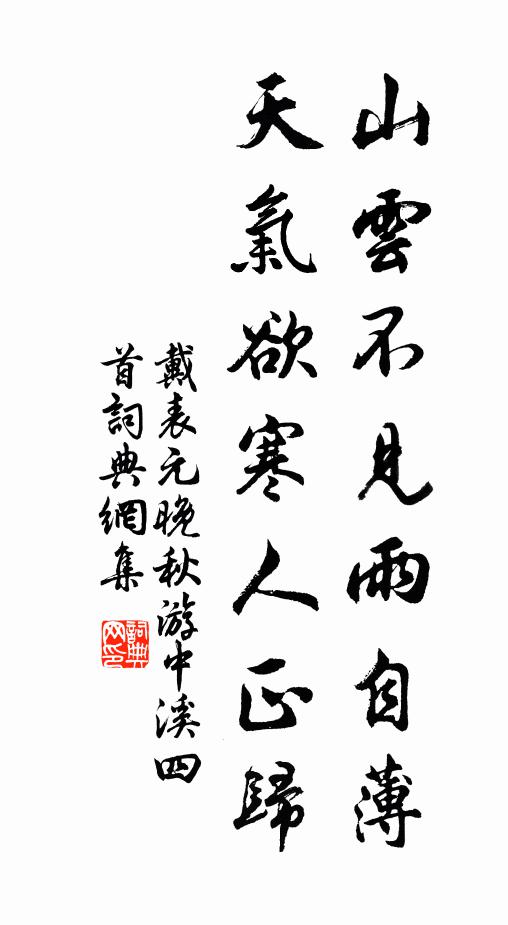 山雲不見雨自薄
天氣欲寒人正歸
戴表元晚秋游中溪四
首詞典網集
詞典
网印